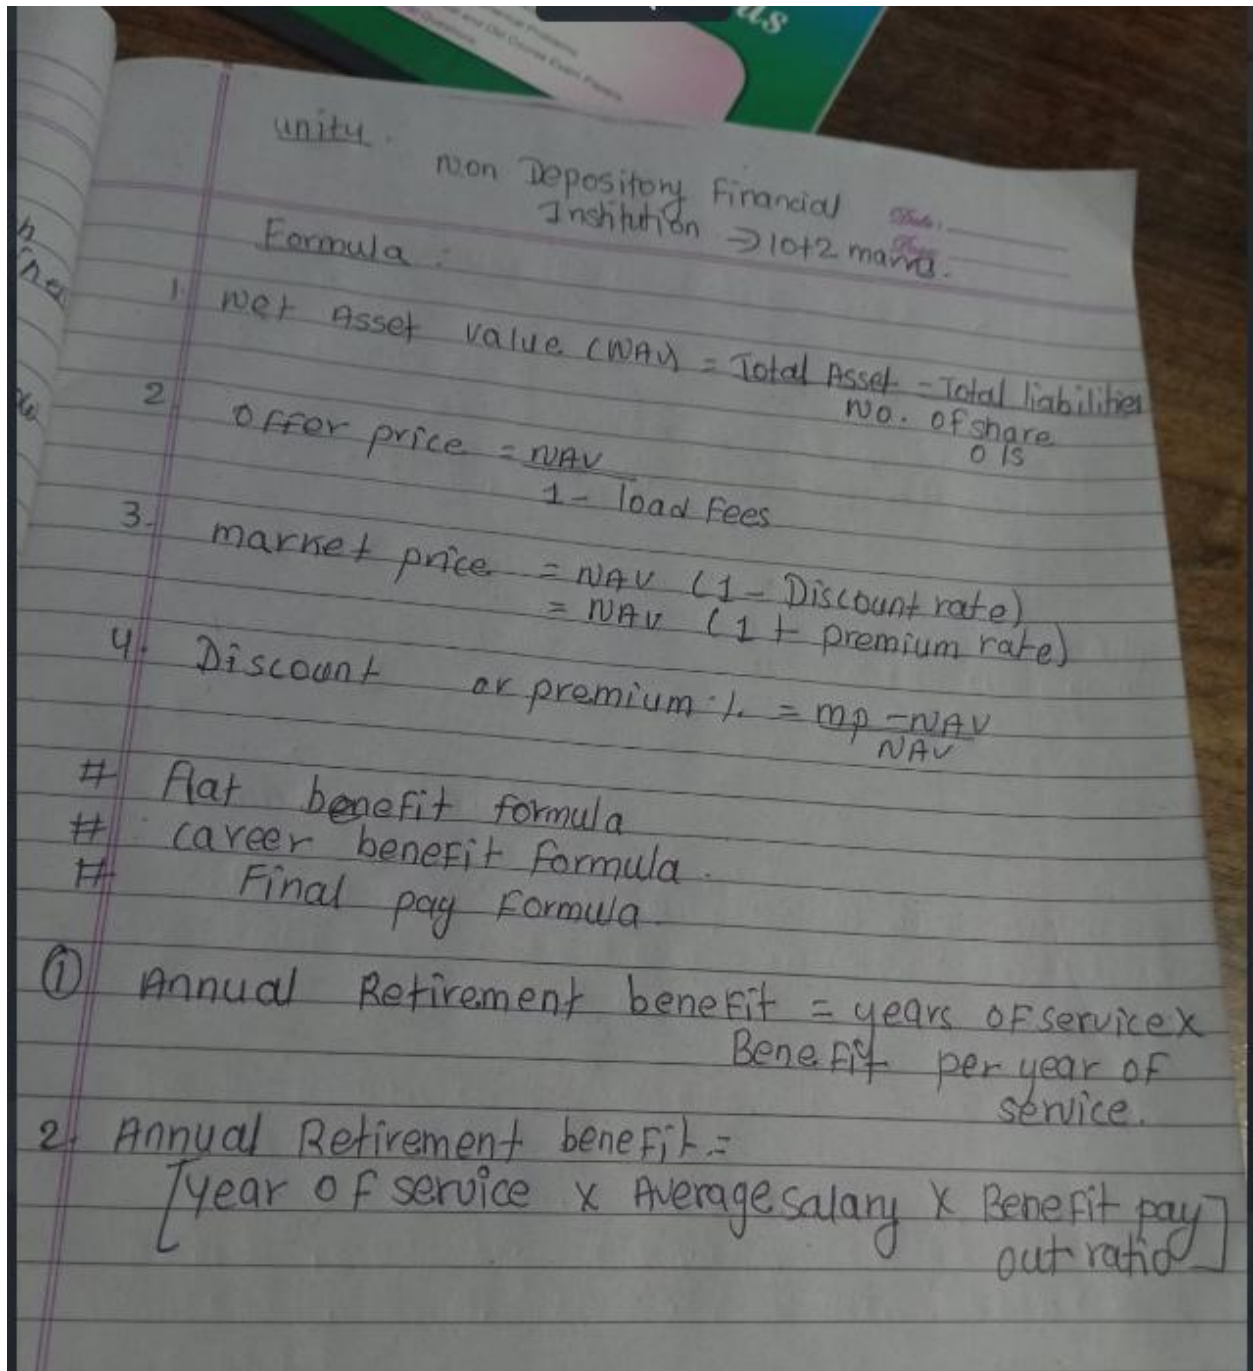 us
and Old Course Exam Papers
unity.
Non Depository Financial
Institution → 10+2 marks.
Date:
Formula :
1. Net Asset Value (NAV) = Total Asset - Total liabilities
No. of share
o/s
2. Offer price = NAV
1 - load fees
3. market price = NAV (1 - Discount rate)
= NAV (1 + premium rate)
4. Discount or premium % = mp - NAV
NAV
# Flat benefit formula
# career benefit formula.
# Final pay formula.
① Annual Retirement benefit = years of service x
Benefit per year of
service.
2. Annual Retirement benefit =
[year of service x Average salary x Benefit pay
out ratio]